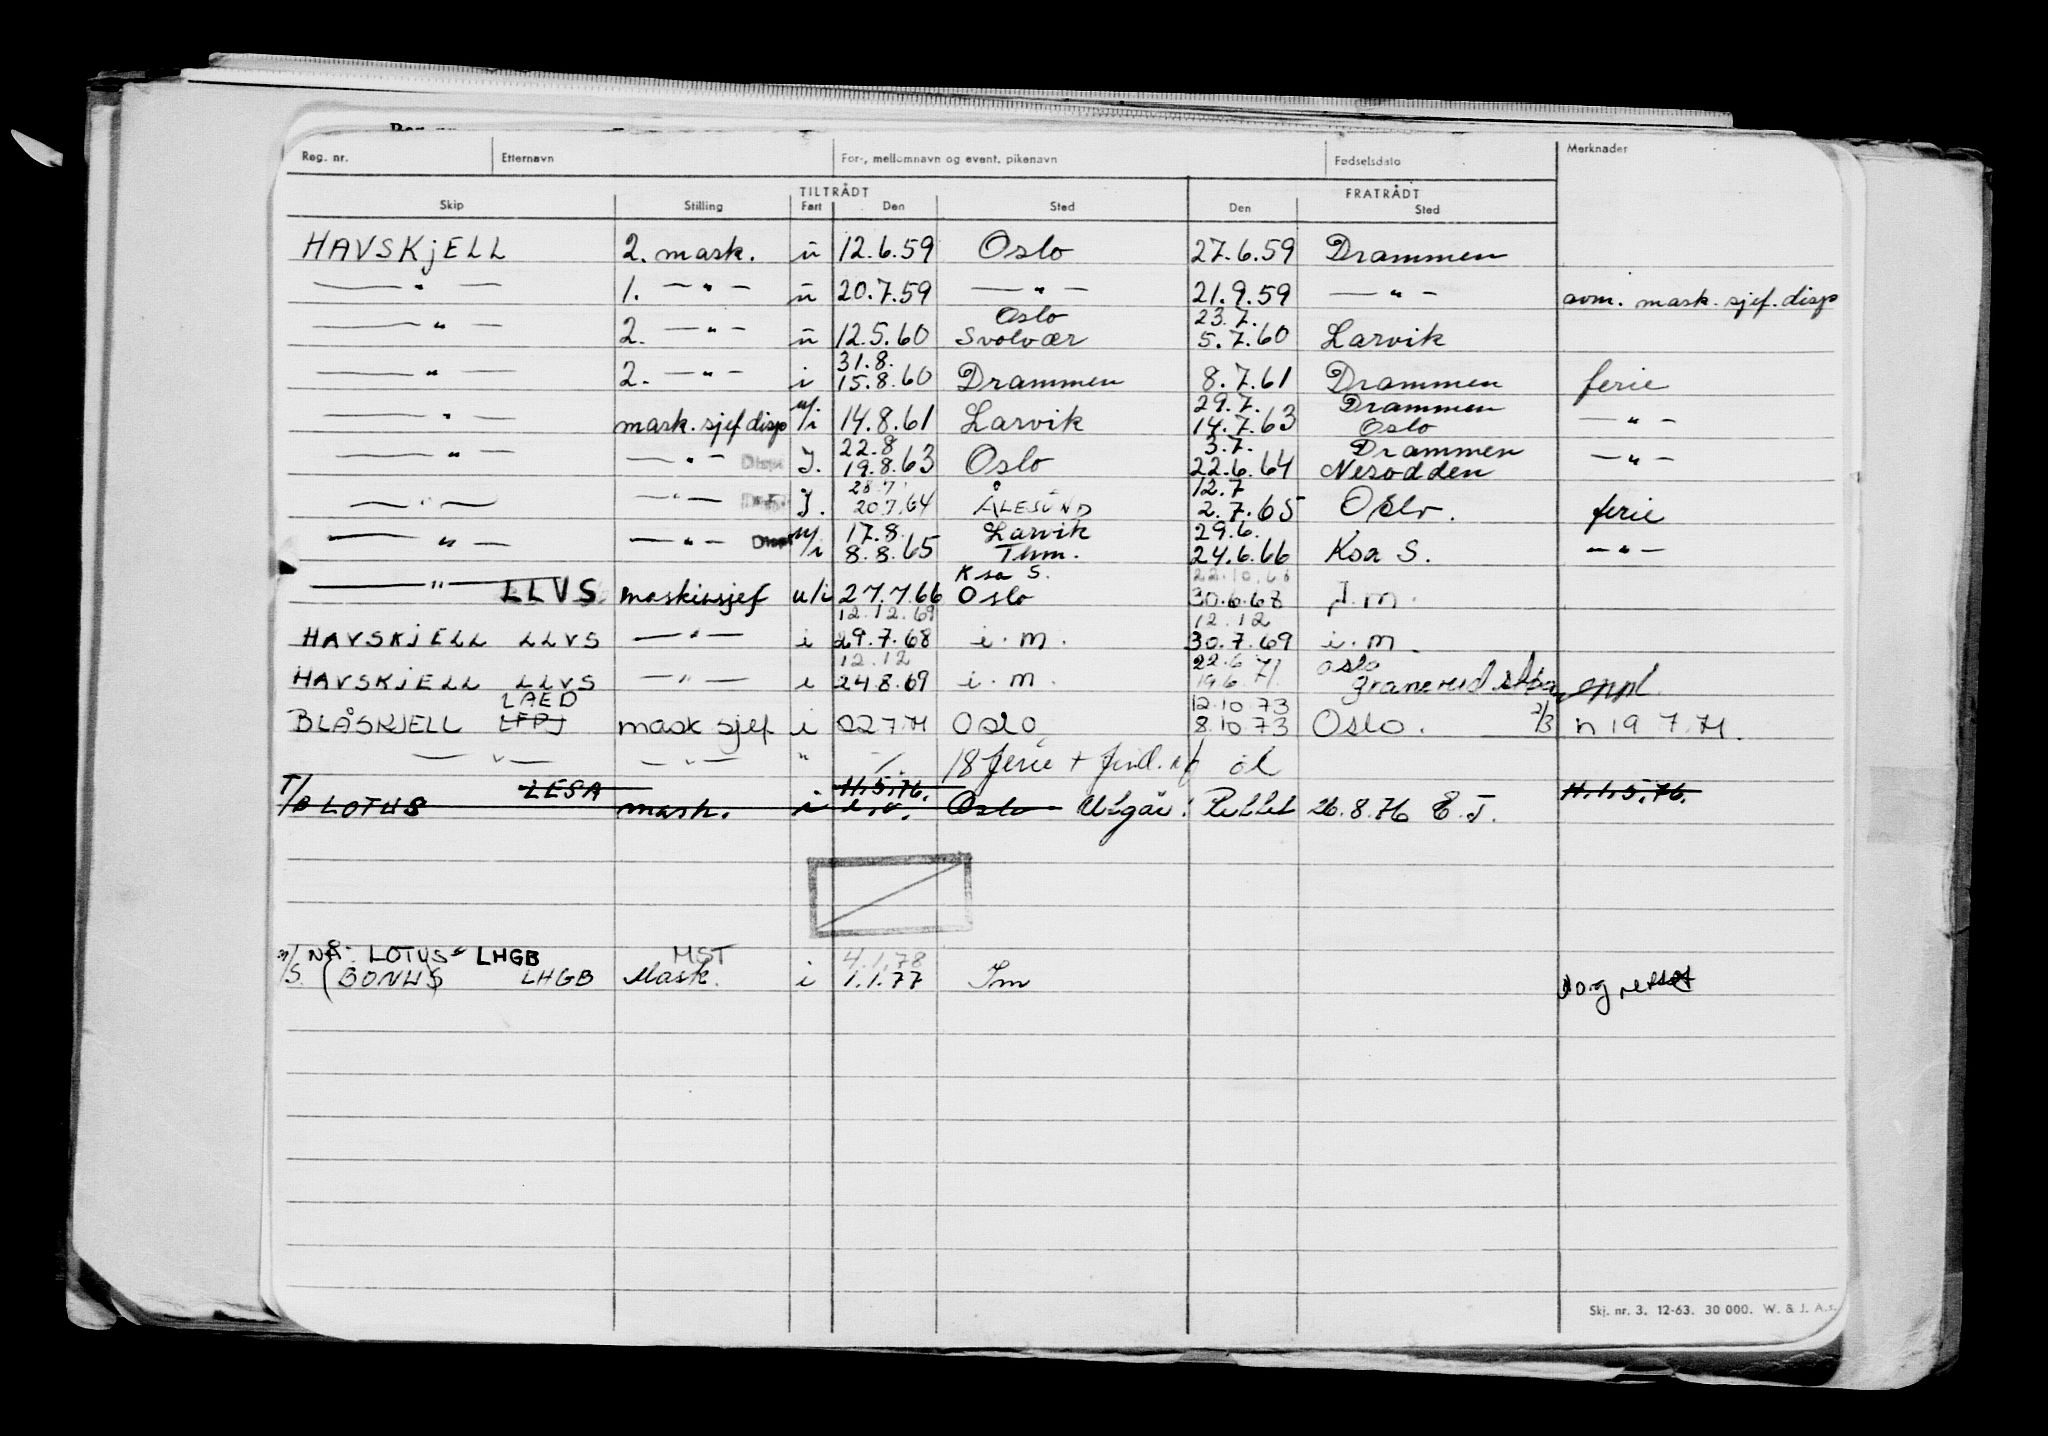 Reg. nr. Etternavn For-, mellomnavn og event. pikenavn Fødselsdato Merknader
TILTRÅDT FRATRÅDT
Skip Stilling Fart Den Sted Den Sted
HAVSKjELL 2. mask. u 12.6.59 Oslo 27.6.59 Drammen
— " — 1. — " — u 20.7.59 — " — 21.9.59 — " — avm. mask. sjef. disp
Oslo 23.7.
— " — 2. — " — u 12.5.60 Svolvær 5.7.60 Larvik
31.8.
— " — 2. — " — i 15.8.60 Drammen 8.7.61 Drammen ferie
29.7. Drammen
— " — mask. sjef disp u/i 14.8.61 Larvik 14.7.63 Oslo — " —
22.8 3.7. Drammen
— " — — " — Disp J. 19.8.63 Oslo 22.6.64 Nesodden — " —
28.7 12.7
— " — — " — Disp J. 20.7.64 ÅLESUND 2.7.65 Oslo. ferie
17.8. Larvik 29.6.
— " — — " — Disp u/i 8.8.65 Thm. 24.6.66 Ksa S. — " —
Ksa S. 22.10.68
— " — LLVS maskinsjef u/i 27.7.66 Oslo 30.6.68 J.m.
12.12.69 12.12
HAVSKjELL LLVS — " — i 29.7.68 i.m. 30.7.69 i.m.
12.12 22.6 Oslo
HAVSKJELL LLVS — " — i 24.8.69 i.m. 19.6 71.
LAED 12.10.73
BLÅSKJELL mask sjef i 22.7.71 Oslo 8.10.73 Oslo. 2/3 n 19.7.71.
— " — — " — " 18 ferie +
T/ LESA 11.5.76. 11.1.5.76.
LOTUS mask. i Oslo Utgår. 26.8.76 E.J.
m/ NÅ: LOTUS" LHGB MST 4.1.78
S. (BONUS) LHGB Mask. i 1.1.77 Im
Skj. nr. 3. 12-63. 30 000. W. & J. A.s.